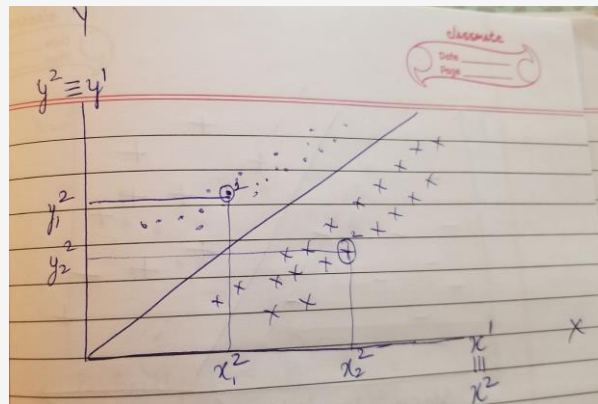 Y
classmate
Date
Page
y² ≡ y¹
1
y₁²
2
y₂²
x₁²
x₂²
x¹
X
|||
x²